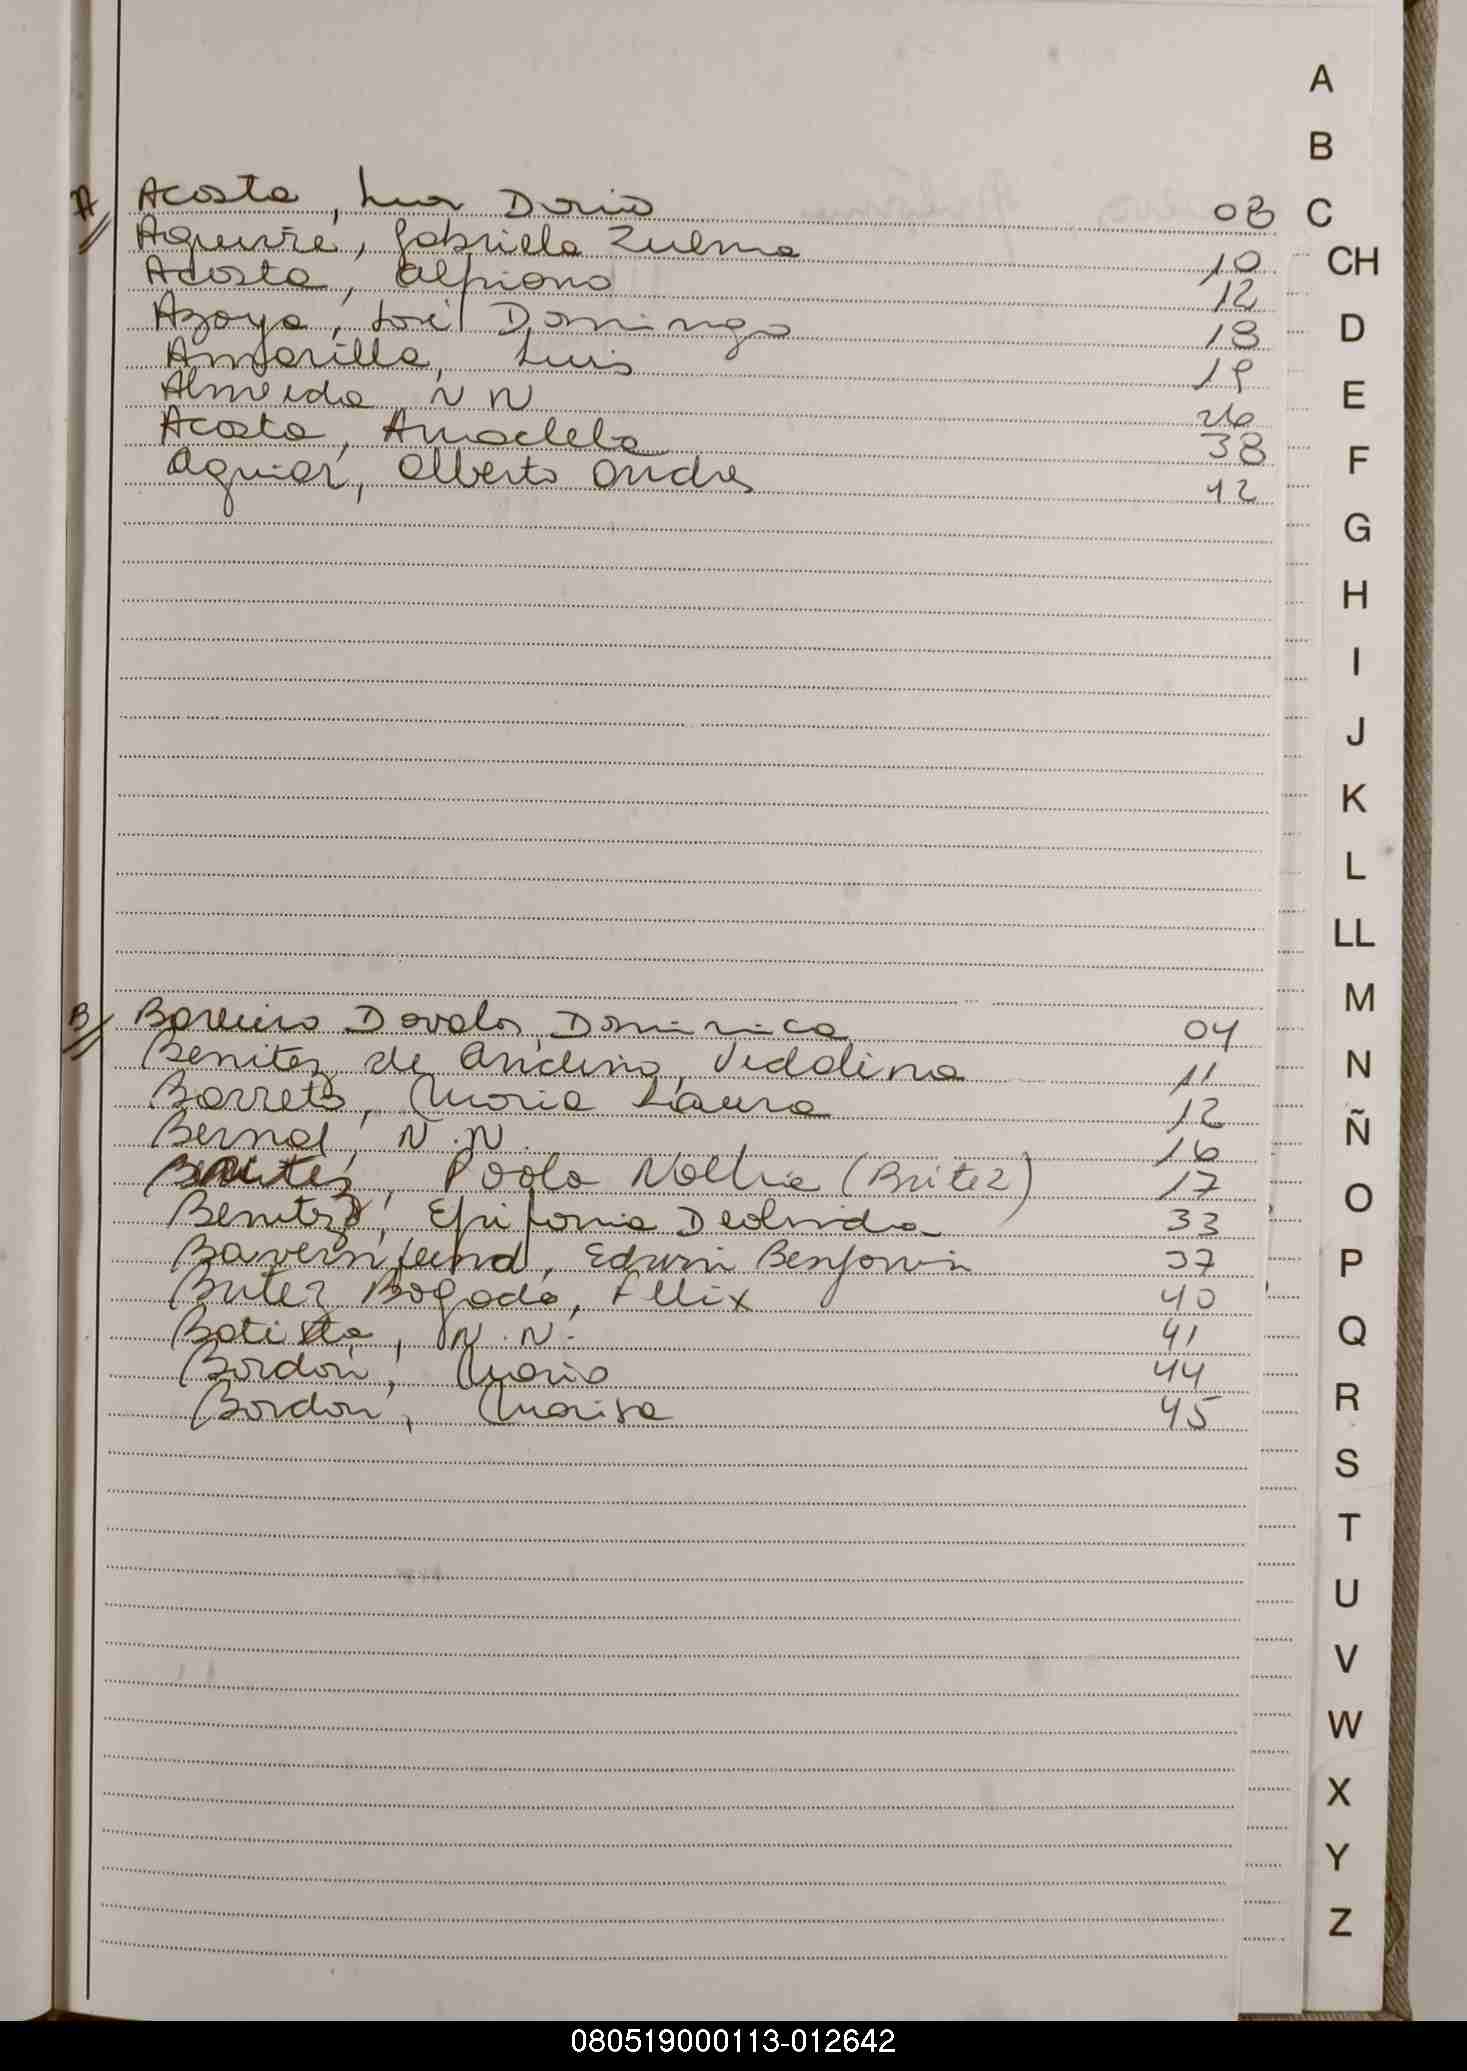 A
B
C
CH
D
E
F
G
H
I
J
K
L
LL
M
N
Ñ
O
P
Q
R
S
T
U
V
W
X
Y
Z
A Acosta, Dario 08
Aguirre, Gabriela Zulma 10
Acosta, Alpiano 12
Azoya, José Domingo 18
Amarilla, Luis 19
Almeida N N 26
Acosta, Anacleta 38
Aguiar, Alberto Andres 42
B Bareiro Davalos, Dominica 04
Benitez de Andino, 11
Barreto, Maria Laura 12
Bernal, N.N. 16
Paola Noelia (Britez) 17
Benitez, Epifania Deolinda 33
Bavernfeind, Edwin Benjamin 37
Britez Bogado, Felix 40
Batista, N.N. 41
Bordon, Maria 44
Bordon, Marisa 45
080519000113-012642